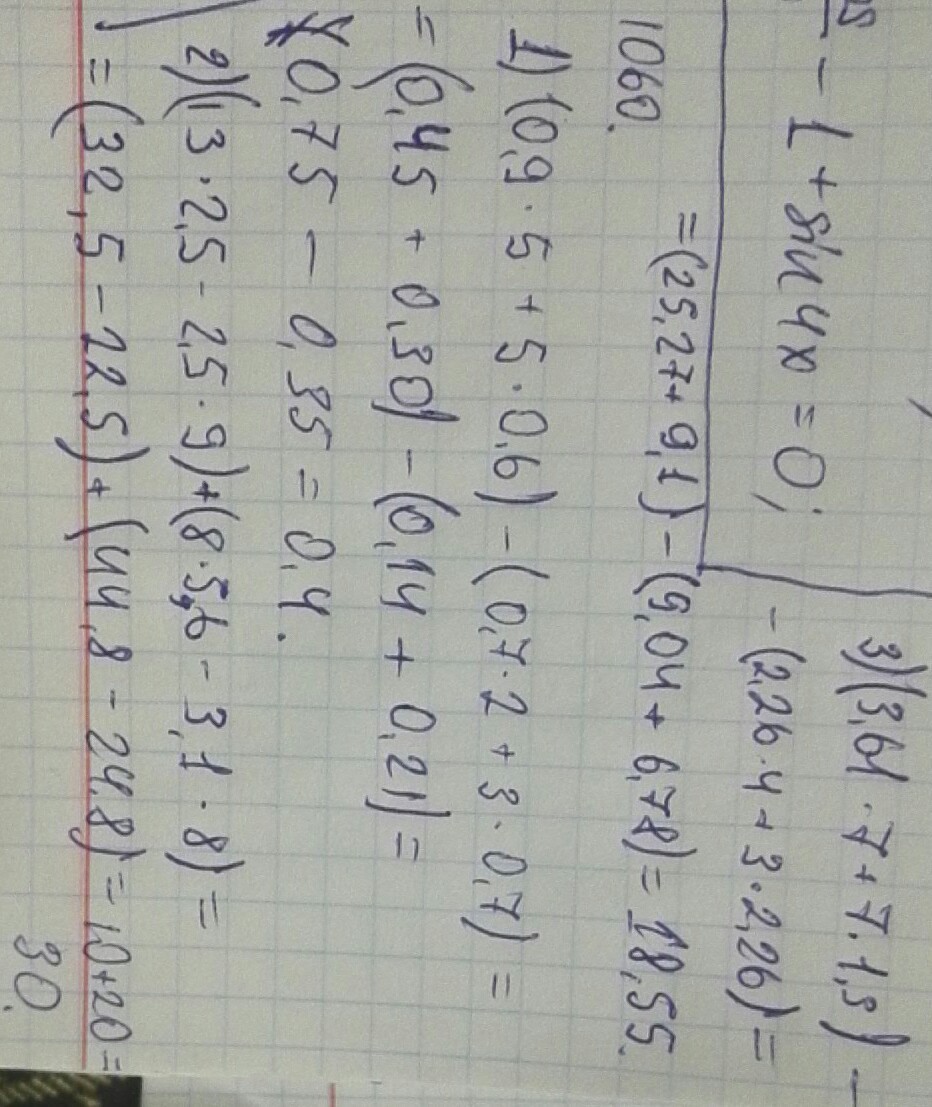 - 1 + sin 4x = 0;
1060.
1) (0,9 · 5 + 5 · 0,6) - (0,7 · 2 + 3 · 0,7) =
= (0,45 + 0,30) - (0,14 + 0,21) =
0,75 - 0,35 = 0,4.
2) (13 · 2,5 - 2,5 · 9) + (8 · 5,6 - 3,1 · 8) =
= (32,5 - 22,5) + (44,8 - 24,8) = 10 + 20 =
30.
3) (3,61 · 7 + 7 · 1,3) -
- (2,26 · 4 + 3 · 2,26) =
= (25,27 + 9,1) - (9,04 + 6,78) = 18,55.